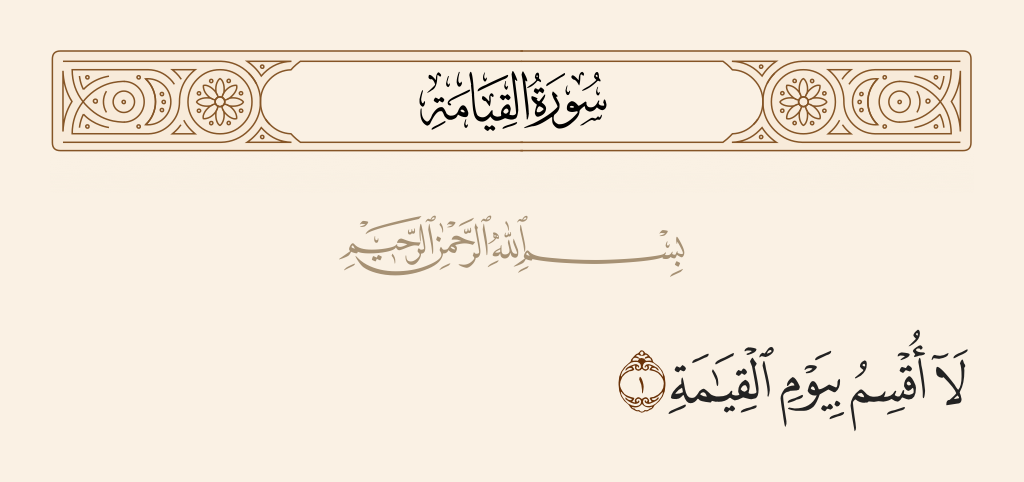 سُورَةُ القِيَامَةِ
بِسْمِ ٱللَّهِ ٱلرَّحْمَٰنِ ٱلرَّحِيمِ
لَآ أُقْسِمُ بِيَوْمِ ٱلْقِيَٰمَةِ ١